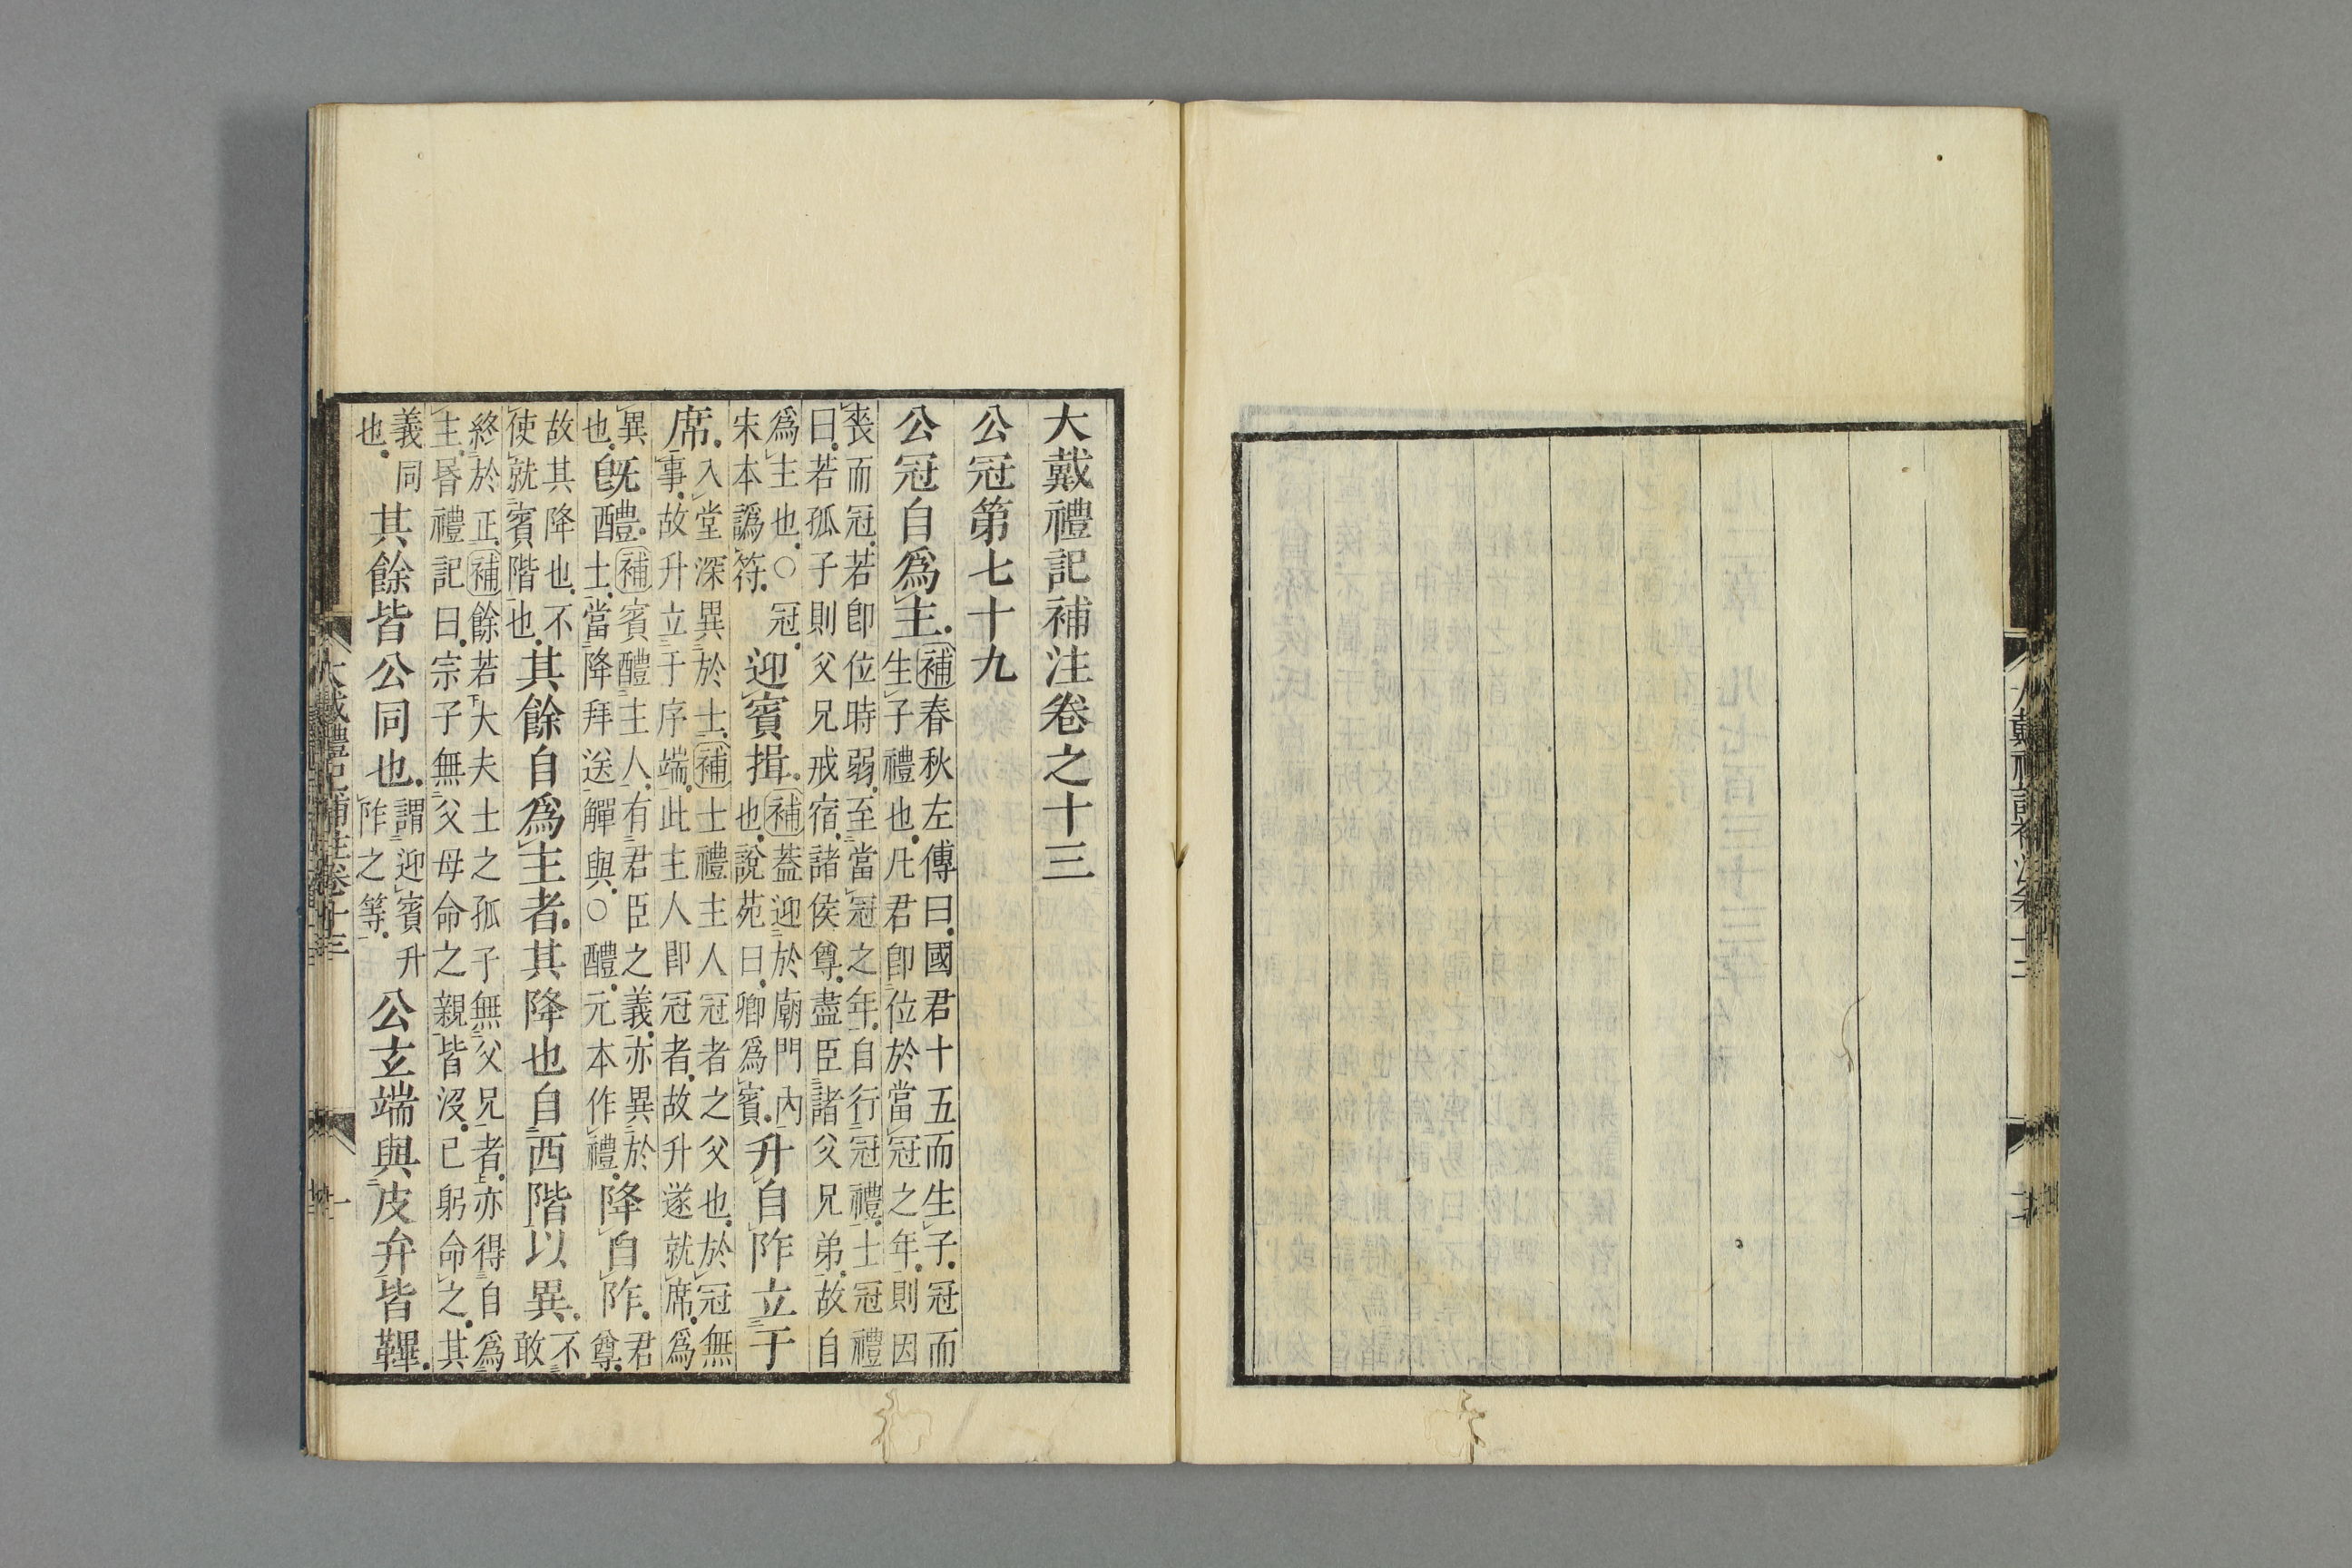 大戴禮記補注卷十二
大戴禮記補注卷之十三
公冠第七十九
公冠自爲主。補春秋左傅曰。國君十五而生子。冠而
生子禮也。凡君卽位於當冠之年。則因
喪而冠。若卽位時弱。至當冠之年。自行冠禮。士冠禮
曰。若孤子則父兄戒宿。諸侯尊。盡臣諸父兄弟。故自
爲主也。○冠。
宋本譌符。
迎賓揖。補葢迎於廟門內
也。說苑曰。卿爲賓。
升自阼立于
席。入堂深異於士。補士禮主人冠者之父也。於冠無
事。故升立于序端。此主人卽冠者。故升遂就席。爲
異
也。
旣醴。補賓醴主人。有君臣之義。亦異於
士。當降拜送觶與。○醴。元本作禮。
降自阼。君
尊。
故其降也。不
使就賓階也。
其餘自爲主者。其降也自西階以異。不
敢
終於正。補餘若大夫士之孤子無父兄者。亦得自爲
主。昬禮記曰。宗子無父母命之。親皆沒。已躬命之。其
義同
也。
其餘皆公同也。謂迎賓升
阼之等。
公玄端與皮弁皆韠。
大戴禮記補注卷十三
一